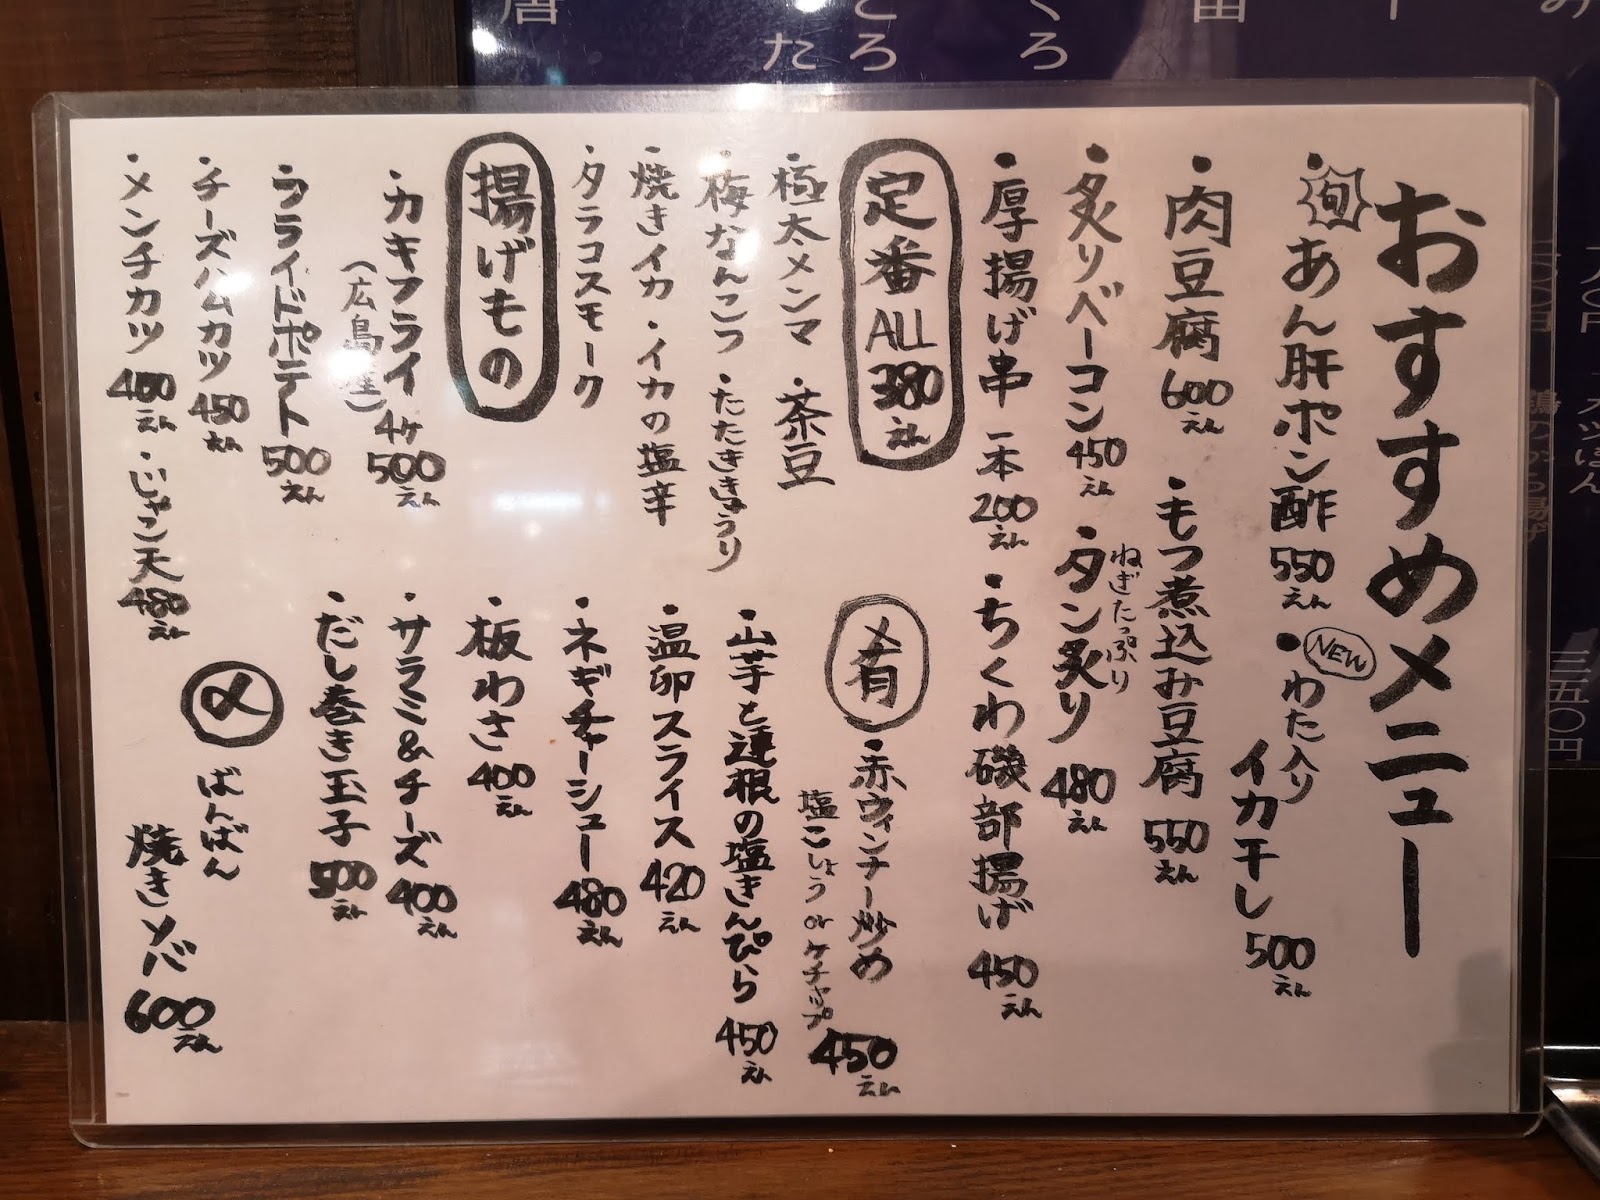 おすすめメニュー
・旬 あん肝ポン酢 550えん
・NEW わた入り
イカ干し 500えん
・肉豆腐 600えん
・もつ煮込み豆腐 550えん
・炙りベーコン 450えん
ねぎたっぷり
・タン炙り 480えん
・厚揚げ串 一本 200えん
・ちくわ磯部揚げ 450えん
定番 ALL 380えん
・極太メンマ ・茶豆
・梅なんこつ ・たたききゅうり
・焼きイカ ・イカの塩辛
・タラコスモーク
肴
・赤ウィンナー炒め
塩こしょう or ケチャップ 450えん
・山芋と蓮根の塩きんぴら 450えん
・温卵スライス 420えん
・ネギチャーシュー 480えん
・板わさ 400えん
・サラミ&チーズ 400えん
・だし巻き玉子 500えん
揚げもの
・カキフライ 4ヶ 500えん
(広島産)
・フライドポテト 500えん
・チーズハムカツ 450えん
・メンチカツ 400えん
・じゃこ天 480えん
〆
ばんばん
焼きソバ 600えん